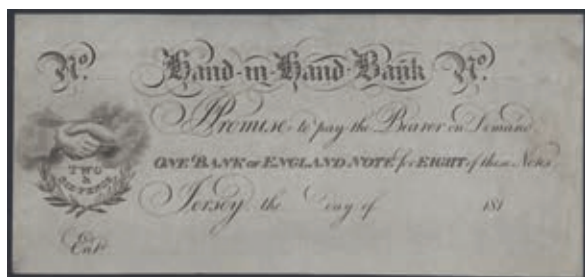 No. Hand-in-Hand-Bank No.
I Promise to pay the Bearer on Demand
ONE BANK OF ENGLAND NOTE for EIGHT of these Notes.
TWO
&
SIXPENCE
Jersey, the day of 181
Entd.